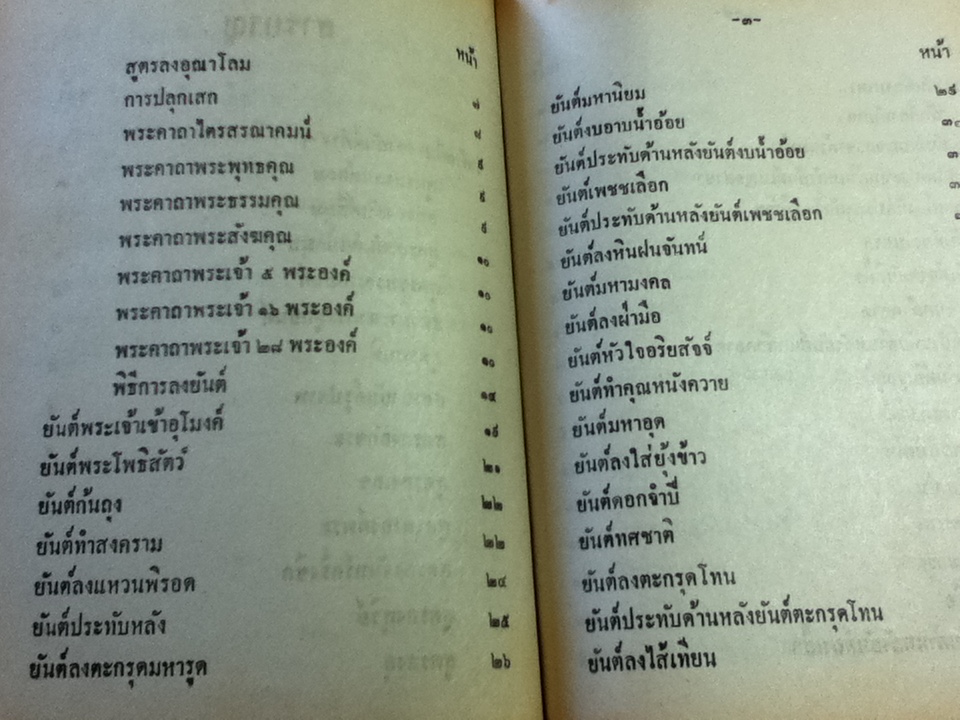 หน้า
สูตรลงอุณาโลม
การปลุกเสก ๗
พระคาถาไตรสรณาคมน์
พระคาถาพระพุทธคุณ ๙
พระคาถาพระธรรมคุณ ๙
พระคาถาพระสังฆคุณ ๙
พระคาถาพระเจ้า ๕ พระองค์ ๑๐
พระคาถาพระเจ้า ๑๖ พระองค์ ๑๐
พระคาถาพระเจ้า ๒๘ พระองค์ ๑๐
พิธีการลงยันต์ ๑๐
ยันต์พระเจ้าเข้าอุโมงค์
ยันต์พระโพธิสัตว์ ๑๙
ยันต์ก้นถุง ๒๑
ยันต์ทำสงคราม ๒๒
ยันต์ลงแหวนพิรอด ๒๔
ยันต์ประทับหลัง ๒๕
ยันต์ลงตะกรุดมหารูด ๒๖
-๓-
หน้า
ยันต์มหานิยม ๒๙
ยันต์งบอาบน้ำอ้อย
ยันต์ประทับด้านหลังยันต์งบน้ำอ้อย
ยันต์เพชชเลือก
ยันต์ประทับด้านหลังยันต์เพชชเลือก
ยันต์ลงหินฝนจันทน์
ยันต์มหามงคล
ยันต์ลงฝ่ามือ
ยันต์หัวใจอริยสัจจ์
ยันต์ทำคุณหนังควาย
ยันต์มหาอุด
ยันต์ลงใส่ยุ้งข้าว
ยันต์ดอกจำปี
ยันต์ทศชาติ
ยันต์ลงตะกรุดโทน
ยันต์ประทับด้านหลังยันต์ตะกรุดโทน
ยันต์ลงไส้เทียน